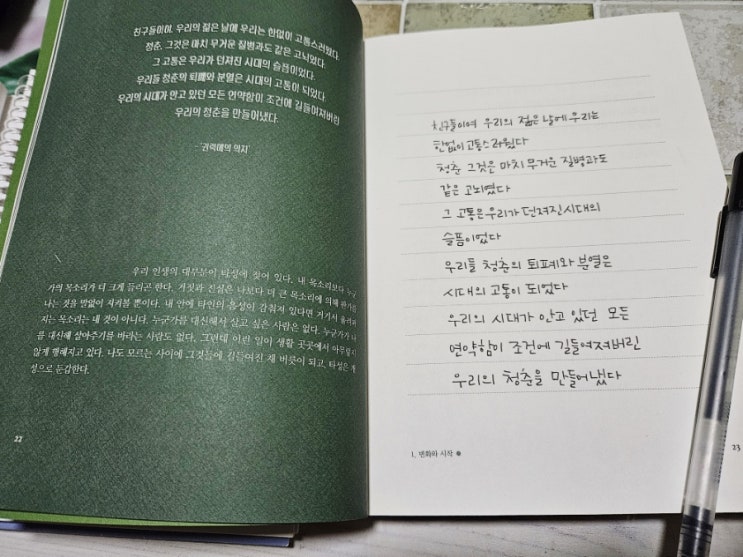 친구들이여, 우리의 젊은 날에 우리는 한없이 고통스러웠다.
청춘, 그것은 마치 무거운 질병과도 같은 고뇌였다.
그 고통은 우리가 던져진 시대의 슬픔이었다.
우리들 청춘의 퇴폐와 분열은 시대의 고통이 되었다.
우리의 시대가 안고 있던 모든 연약함이 조건에 길들여져버린
우리의 청춘을 만들어냈다.
- '권력에의 의지'
우리 인생의 대부분이 타성에 젖어 있다. 내 목소리보다 누군
가의 목소리가 더 크게 들리곤 한다. 거짓과 진실은 나보다 더 큰 목소리에 의해 판가름
나는 것을 말없이 지켜볼 뿐이다. 내 안에 타인의 음성이 감춰져 있다면 거기서 울려퍼
지는 목소리는 내 것이 아니다. 누군가를 대신해서 살고 싶은 사람은 없다. 누군가가 나
를 대신해 살아주기를 바라는 사람도 없다. 그런데 이런 일이 생활 곳곳에서 아무렇지
않게 행해지고 있다. 나도 모르는 사이에 그것들에 길들여진 채 버릇이 되고, 타성은 개
성으로 둔갑한다.
22
친구들이여 우리의 젊은 날에 우리는
한없이 고통스러웠다
청춘 그것은 마치 무거운 질병과도
같은 고뇌였다
그 고통은 우리가 던져진 시대의
슬픔이었다
우리들 청춘의 퇴폐와 분열은
시대의 고통이 되었다
우리의 시대가 안고 있던 모든
연약함이 조건에 길들여져버린
우리의 청춘을 만들어냈다
1. 변화와 시작
23